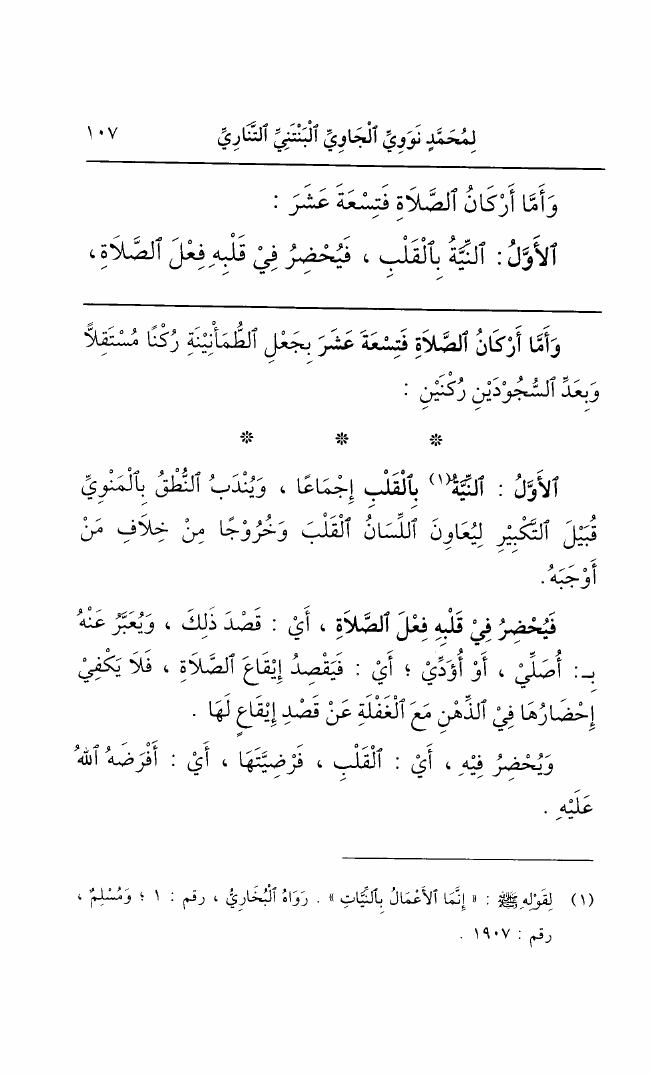 لِمُحَمَّدٍ نَوَوِيِّ ٱلْجَاوِيِّ ٱلْبَنْتَنِيِّ ٱلتَّنَارِيِّ ١٠٧
وَأَمَّا أَرْكَانُ ٱلصَّلَاةِ فَتِسْعَةَ عَشَرَ :
ٱلأَوَّلُ : ٱلنِّيَّةُ بِٱلْقَلْبِ ، فَيُحْضِرُ فِيْ قَلْبِهِ فِعْلَ ٱلصَّلَاةِ،
وَأَمَّا أَرْكَانُ ٱلصَّلَاةِ فَتِسْعَةَ عَشَرَ بِجَعْلِ ٱلطُّمَأْنِيْنَةِ رُكْنًا مُسْتَقِلاًّ
وَبِعَدِّ ٱلسُّجُوْدَيْنِ رُكْنَيْنِ :
* * *
ٱلأَوَّلُ : ٱلنِّيَّةُ(١) بِٱلْقَلْبِ إِجْمَاعًا ، وَيُنْدَبُ ٱلنُّطْقُ بِٱلْمَنْوِيِّ
قُبَيْلَ ٱلتَّكْبِيْرِ لِيُعَاوِنَ ٱللِّسَانُ ٱلْقَلْبَ وَخُرُوْجًا مِنْ خِلَافِ مَنْ
أَوْجَبَهُ.
فَيُحْضِرُ فِيْ قَلْبِهِ فِعْلَ ٱلصَّلَاةِ ، أَيْ : قَصْدَ ذَلِكَ ، وَيُعَبَّرُ عَنْهُ
بِـ: أُصَلِّيْ ، أَوْ أُؤَدِّيْ ؛ أَيْ : فَيَقْصِدُ إِيْقَاعَ ٱلصَّلَاةِ ، فَلَا يَكْفِيْ
إِحْضَارُهَا فِيْ ٱلذِّهْنِ مَعَ ٱلْغَفْلَةِ عَنْ قَصْدِ إِيْقَاعٍ لَهَا .
وَيُحْضِرُ فِيْهِ ، أَيْ : ٱلْقَلْبِ ، فَرْضِيَّتَهَا ، أَيْ : أَفْرَضَهُ ٱللهُ
عَلَيْهِ .
(١) لِقَوْلِهِ ﷺ : « إِنَّمَا ٱلأَعْمَالُ بِٱلنِّيَّاتِ » . رَوَاهُ ٱلْبُخَارِيُّ ، رقم : ١ ؛ وَمُسْلِمٌ ،
رقم : ١٩٠٧ .